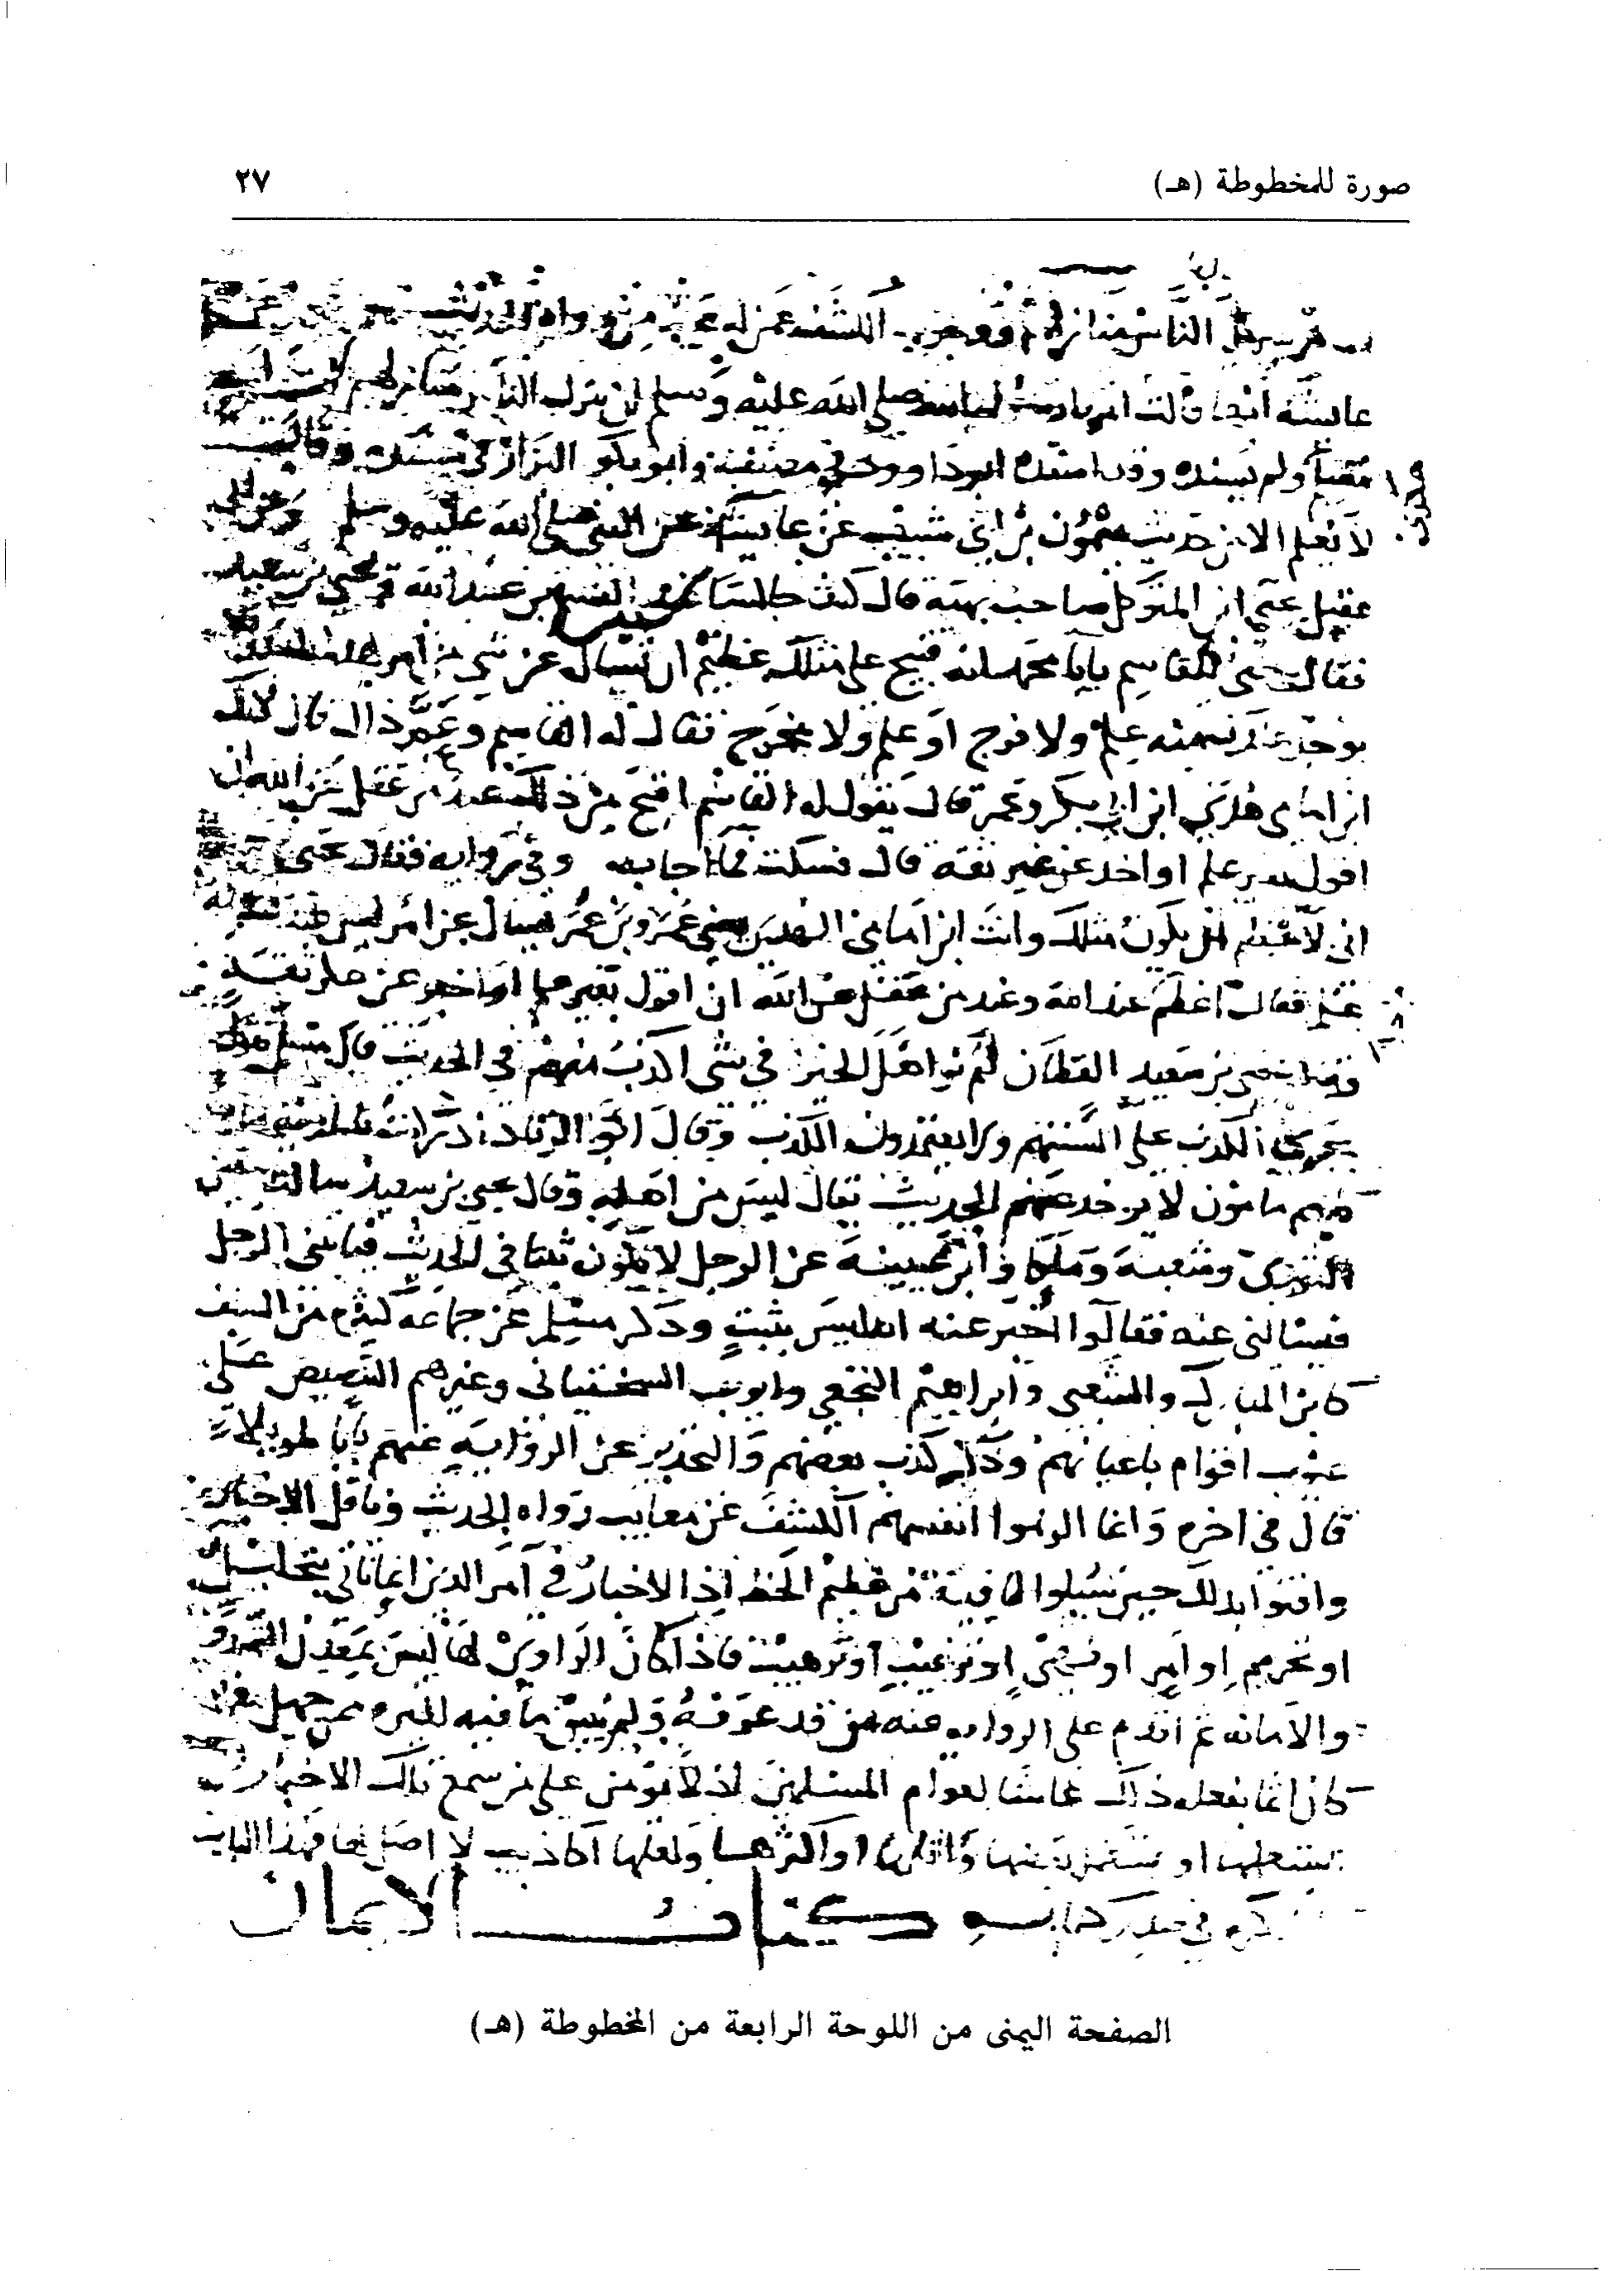 صورة للمخطوطة (هـ)
٢٧
باب
الناس منازلهم ووجوب الكشف عمن له عيب من رواة الحديث
عايشة انها قالت امرنا رسول الله صلى الله عليه وسلم ان ننزل الناس منازلهم
ولم يسنده وقد اسنده ابو داوود في مصنفه وابو بكر البزار في مسنده وقال
لا نعلم الا من حديث ميمون بن ابي شبيب عن عايشة عن النبي صلى الله عليه وسلم وعن ابي
عقيل يحيى ابن المتوكل صاحب بهية قال كنت جالسا عند القسم بن عبد الله ويحيى بن سعيد
فقال يحيى للقاسم يا با محمد انه قبيح على مثلك عظيم ان تسال عن شي من امر هذا الدين
يوجد عندك منه علم ولا فرج او علم ولا مخرج فقال له القاسم وعم ذاك قال لانك
ابن امامي هدى ابن ابي بكر وعمر قال يقول له القاسم اقبح من ذلك عند من عقل عن الله ان
اقول بغير علم او اخذ عن غير ثقة قال فسكت فما اجابه وفي رواية فقال يحيى
اني لاعظم ان يكون مثلك وانت ابن امامي الهدى يعني عمر وبن عمر تسال عن امر ليس عندك فيه
علم فقال اعظم عند الله وعند من عقل عن الله ان اقول بغير علم او اخبر عن غير ثقة
وقال يحيى بن سعيد القطان لم نر اهل الخير في شي اكذب منهم في الحديث قال مسلم يقول
يجري الكذب على السنتهم ولا يتعمدون الكذب وقال ابو الزناد ادركت بالمدينة مائة
كلهم مامون لا يوخذ عنهم الحديث يقال ليس من اهله وقال يحيى بن سعيد سالت سفين
الثوري وشعبة ومالكا وابن عيينة عن الرجل لا يكون ثبتا في الحديث فياتيني الرجل
فيسالني عنه فقالوا اخبر عنه انه ليس بثبت وذكر مسلم عن جماعة كثيرة من السلف
كابن المبارك والشعبي وابراهيم النخعي وايوب السختياني وغيرهم التنصيص على
عيوب اقوام باعيانهم وذكر كذب بعضهم والتحذير عن الرواية عنهم بابا طويلا
قال في اخره وانما الزموا انفسهم الكشف عن معايب رواة الحديث وناقلي الاخبار
وافتوا بذلك حين سيلوا لما فيه من عظيم الخطر اذ الاخبار في امر الدين انما تاتي بتحليل
او تحريم او امر او نهي او ترغيب او ترهيب فاذا كان الراوي لها ليس بمعدن للصدق
والامانة ثم اقدم على الرواية عنه من قد عرفه ولم يبين ما فيه لغيره ممن جهل معرفته
كان اثما بفعله ذلك غاشا لعوام المسلمين اذ لا يومن على من سمع تلك الاخبار ان
يستعملها او يستعمل بعضها واقلها او اكثرها ولعلها اكاذيب لا اصل لها فهذا الباب
في صدر كتابه كتاب الايمان
الصفحة اليمنى من اللوحة الرابعة من المخطوطة (هـ)